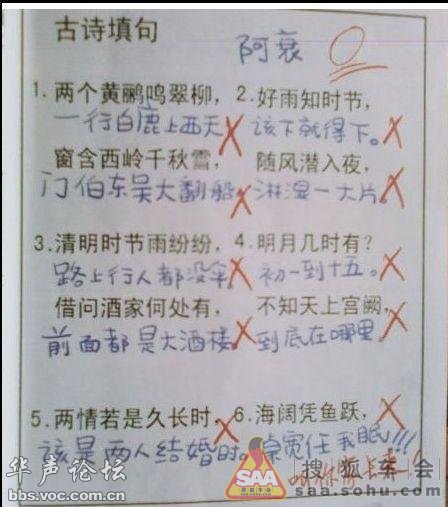 古诗填句
阿衰
0
1. 两个黄鹂鸣翠柳，
一行白鹿上西天
窗含西岭千秋雪，
门伯东吴大翻船
2. 好雨知时节，
该下就得下。
随风潜入夜，
淋湿一大片。
3. 清明时节雨纷纷，
路上行人都没伞
借问酒家何处有，
前面都是大酒楼
4. 明月几时有？
初一到十五。
不知天上宫阙，
到底在哪里
5. 两情若是久长时，
该是两人结婚时。
6. 海阔凭鱼跃，
任我眠!!!
华声论坛
bbs.voc.com.cn
SAA
搜狐车会
搜狐车会
saa.sohu.com